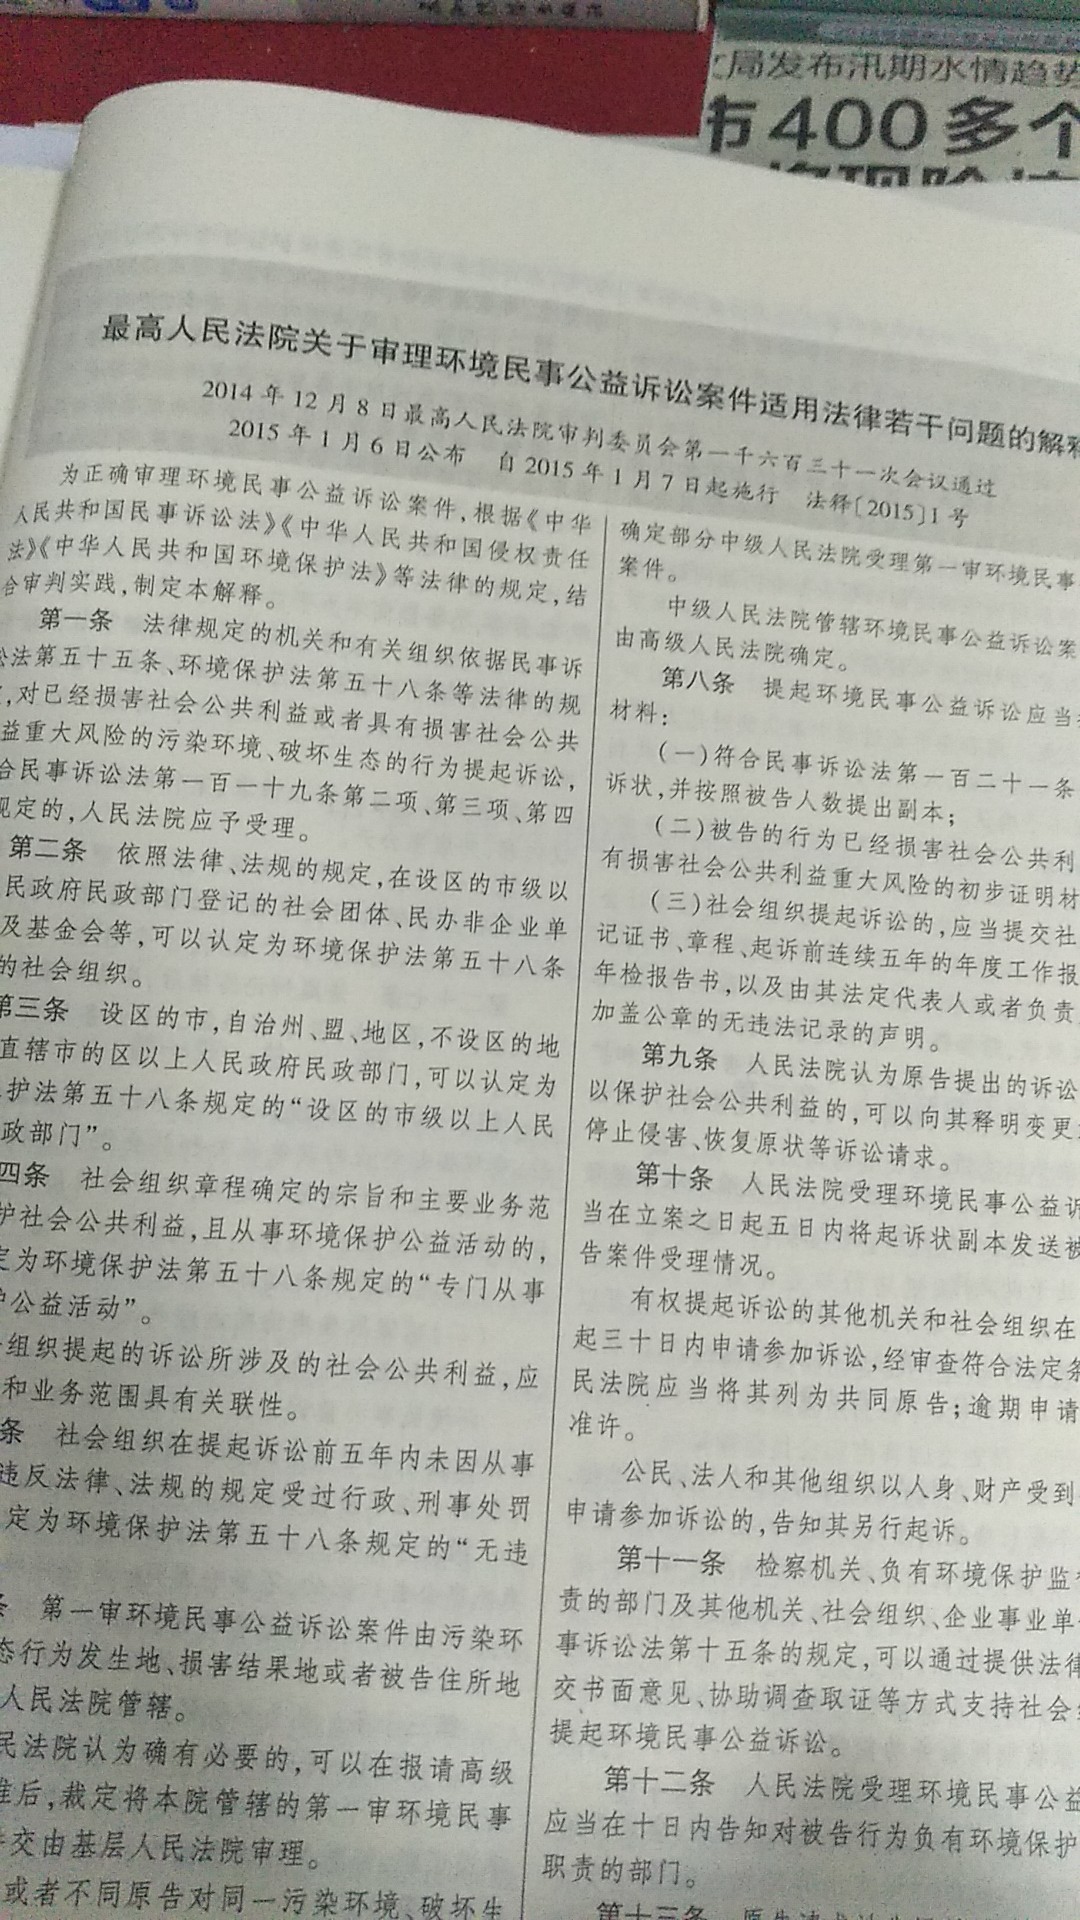 局发布汛期水情趋势
市400多个
最高人民法院关于审理环境民事公益诉讼案件适用法律若干问题的解释
2014年12月8日最高人民法院审判委员会第一千六百三十一次会议通过
2015年1月6日公布 自2015年1月7日起施行 法释〔2015〕1号
为正确审理环境民事公益诉讼案件,根据《中华
人民共和国民事诉讼法》《中华人民共和国侵权责任
法》《中华人民共和国环境保护法》等法律的规定,结
合审判实践,制定本解释。
第一条 法律规定的机关和有关组织依据民事诉
讼法第五十五条、环境保护法第五十八条等法律的规
,对已经损害社会公共利益或者具有损害社会公共
益重大风险的污染环境、破坏生态的行为提起诉讼,
合民事诉讼法第一百一十九条第二项、第三项、第四
规定的,人民法院应予受理。
第二条 依照法律、法规的规定,在设区的市级以
民政府民政部门登记的社会团体、民办非企业单
及基金会等,可以认定为环境保护法第五十八条
的社会组织。
第三条 设区的市,自治州、盟、地区,不设区的地
直辖市的区以上人民政府民政部门,可以认定为
护法第五十八条规定的“设区的市级以上人民
政部门”。
四条 社会组织章程确定的宗旨和主要业务范
护社会公共利益,且从事环境保护公益活动的,
定为环境保护法第五十八条规定的“专门从事
护公益活动”。
组织提起的诉讼所涉及的社会公共利益,应
和业务范围具有关联性。
条 社会组织在提起诉讼前五年内未因从事
违反法律、法规的规定受过行政、刑事处罚
定为环境保护法第五十八条规定的“无违
条 第一审环境民事公益诉讼案件由污染环
态行为发生地、损害结果地或者被告住所地
人民法院管辖。
民法院认为确有必要的,可以在报请高级
准后,裁定将本院管辖的第一审环境民事
交由基层人民法院审理。
或者不同原告对同一污染环境、破坏生
确定部分中级人民法院受理第一审环境民事
案件。
中级人民法院管辖环境民事公益诉讼案
由高级人民法院确定。
第八条 提起环境民事公益诉讼应当
材料:
(一)符合民事诉讼法第一百二十一条
诉状,并按照被告人数提出副本;
(二)被告的行为已经损害社会公共利
有损害社会公共利益重大风险的初步证明材
(三)社会组织提起诉讼的,应当提交社
记证书、章程、起诉前连续五年的年度工作报
年检报告书,以及由其法定代表人或者负责
加盖公章的无违法记录的声明。
第九条 人民法院认为原告提出的诉讼
以保护社会公共利益的,可以向其释明变更
停止侵害、恢复原状等诉讼请求。
第十条 人民法院受理环境民事公益诉
当在立案之日起五日内将起诉状副本发送被
告案件受理情况。
有权提起诉讼的其他机关和社会组织在
起三十日内申请参加诉讼,经审查符合法定条
民法院应当将其列为共同原告;逾期申请
准许。
公民、法人和其他组织以人身、财产受到
申请参加诉讼的,告知其另行起诉。
第十一条 检察机关、负有环境保护监
责的部门及其他机关、社会组织、企业事业单
事诉讼法第十五条的规定,可以通过提供法律
交书面意见、协助调查取证等方式支持社会
提起环境民事公益诉讼。
第十二条 人民法院受理环境民事公益
应当在十日内告知对被告行为负有环境保护
职责的部门。
第十三条